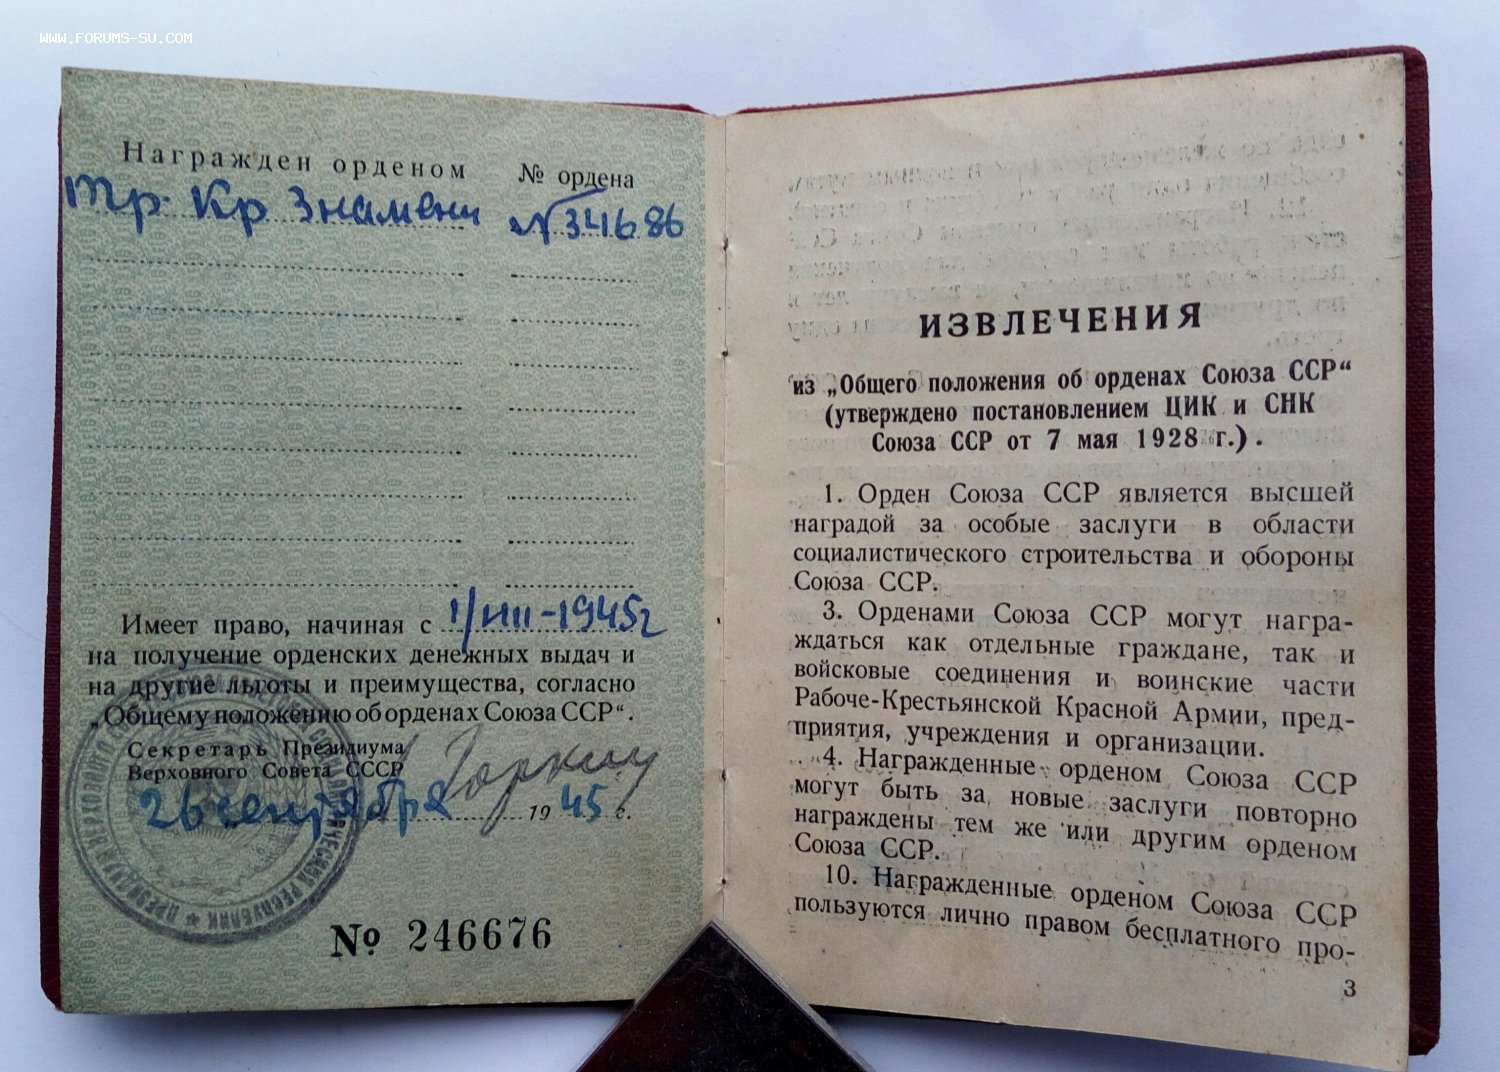 WWW.FORUMS-SU.COM
Награжден орденом № ордена
Тр. Кр Знамени №34686
Имеет право, начиная с 1/VIII-1945г
на получение орденских денежных выдач и
на другие льготы и преимущества, согласно
„Общему положению об орденах Союза ССР“.
Секретарь Президиума
Верховного Совета СССР Горкин
26 сентября 1945 г.
№ 246676
ИЗВЛЕЧЕНИЯ
из „Общего положения об орденах Союза ССР“
(утверждено постановлением ЦИК и СНК
Союза ССР от 7 мая 1928 г.).
1. Орден Союза ССР является высшей
наградой за особые заслуги в области
социалистического строительства и обороны
Союза ССР.
3. Орденами Союза ССР могут награ-
ждаться как отдельные граждане, так и
войсковые соединения и воинские части
Рабоче-Крестьянской Красной Армии, пред-
приятия, учреждения и организации.
4. Награжденные орденом Союза ССР
могут быть за новые заслуги повторно
награждены тем же или другим орденом
Союза ССР.
10. Награжденные орденом Союза ССР
пользуются лично правом бесплатного про-
3